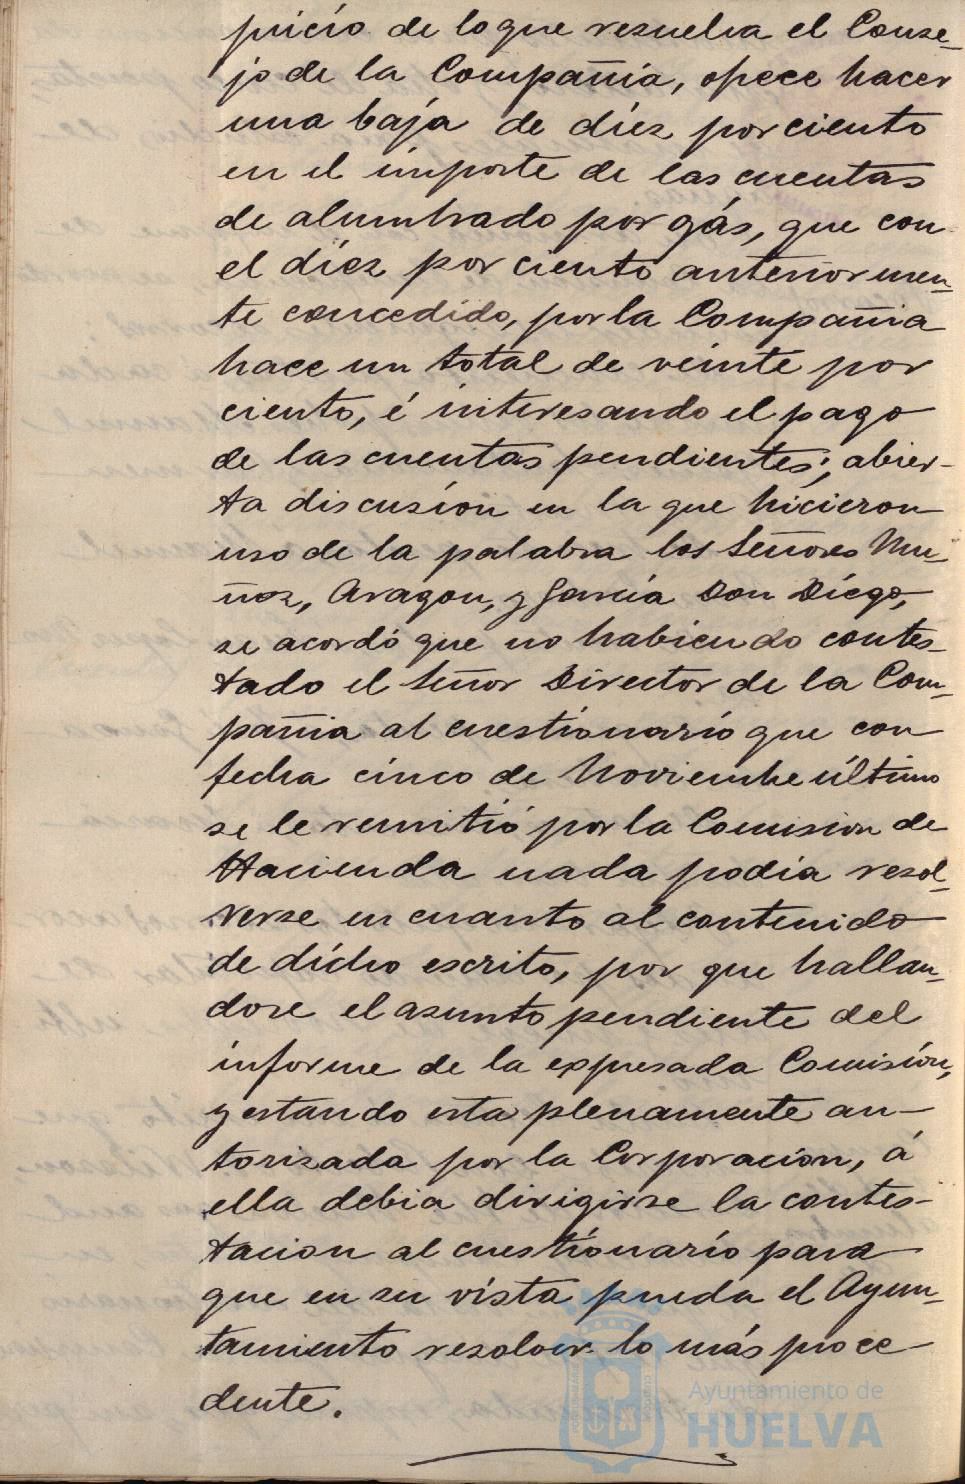 juicio de lo que resuelva el Conse-
jo de la Compañia, ofrece hacer
una baja de diez por ciento
en el importe de las cuentas
de alumbrado por gás, que con
el diez por ciento anteriormen-
te concedido, por la Compañia
hace un total de veinte por
ciento, é interesando el pago
de las cuentas pendientes; abier-
ta discusion en la que hicieron
uso de la palabra los Señores Mu-
ñoz, Aragon, y Garcia Don Diego,
se acordó que no habiendo contes-
tado el Señor Director de la Com-
pañia al cuestionario que con
fecha cinco de Noviembre último
se le remitió por la Comision de
Hacienda nada podia resol-
verse en cuanto al contenido
de dicho escrito, por que hallan-
dose el asunto pendiente del
informe de la expresada Comisión,
y estando esta plenamente au-
torizada por la Corporacion, á
ella debia dirigirse la contes-
tacion al cuestionario para
que en su vista pueda el Ayun-
tamiento resolver lo más proce-
dente.
Ayuntamiento de
HUELVA